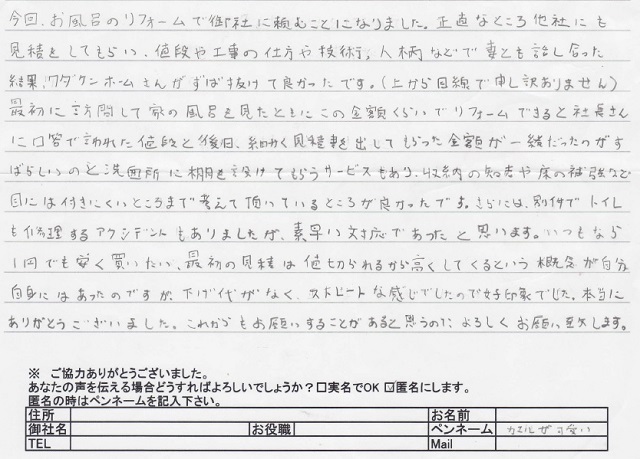 今回、お風呂のリフォームで御社に頼むことになりました。正直なところ他社にも
見積をしてもらい、値段や工事の仕方や技術、人柄などで妻とも話し合った
結果、ワダケンホームさんがずば抜けて良かったです。(上から目線で申し訳ありません)
最初に訪問して家の風呂を見たときにこの金額くらいでリフォームできると社長さん
に口答で言われた値段と後日、細かく見積書を出してもらった金額が一緒だったのがす
ばらしいのと洗面所に棚を設けてもらうサービスもあり、収納の知恵や床の補強など
目には付きにくいところまで考えて頂いているところが良かったです。さらには、別件でトイレ
も修理するアクシデントもありましたが、素早い対応であったと思います。いつもなら
1円でも安く買いたい、最初の見積は値切られるから高くしてくるという概念が自分
自身にはあったのですが、下げ代がなく、ストレートな感じでしたので好印象でした。本当に
ありがとうございました。これからもお願いすることがあると思うのでよろしくお願い致します。
※ ご協力ありがとうございました。
あなたの声を伝える場合どうすればよろしいでしょうか?□実名でOK ☑匿名にします。
匿名の時はペンネームを記入下さい。
住所 お名前
御社名 お役職 ペンネーム カエルが可愛い
TEL Mail